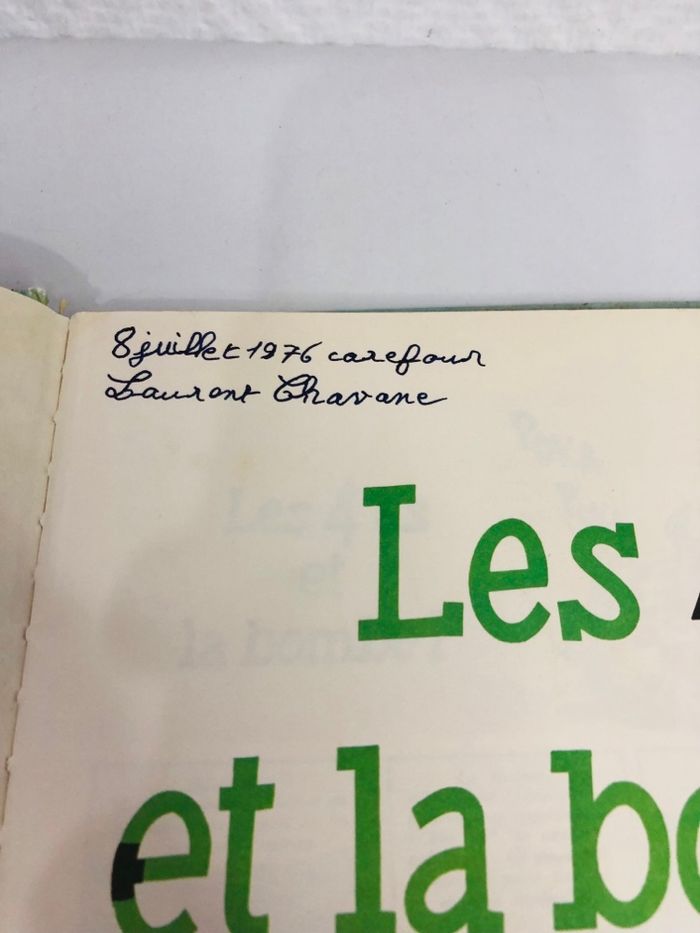 8 juillet 1976 carefour
Laurent Chavane
Les
et la bo